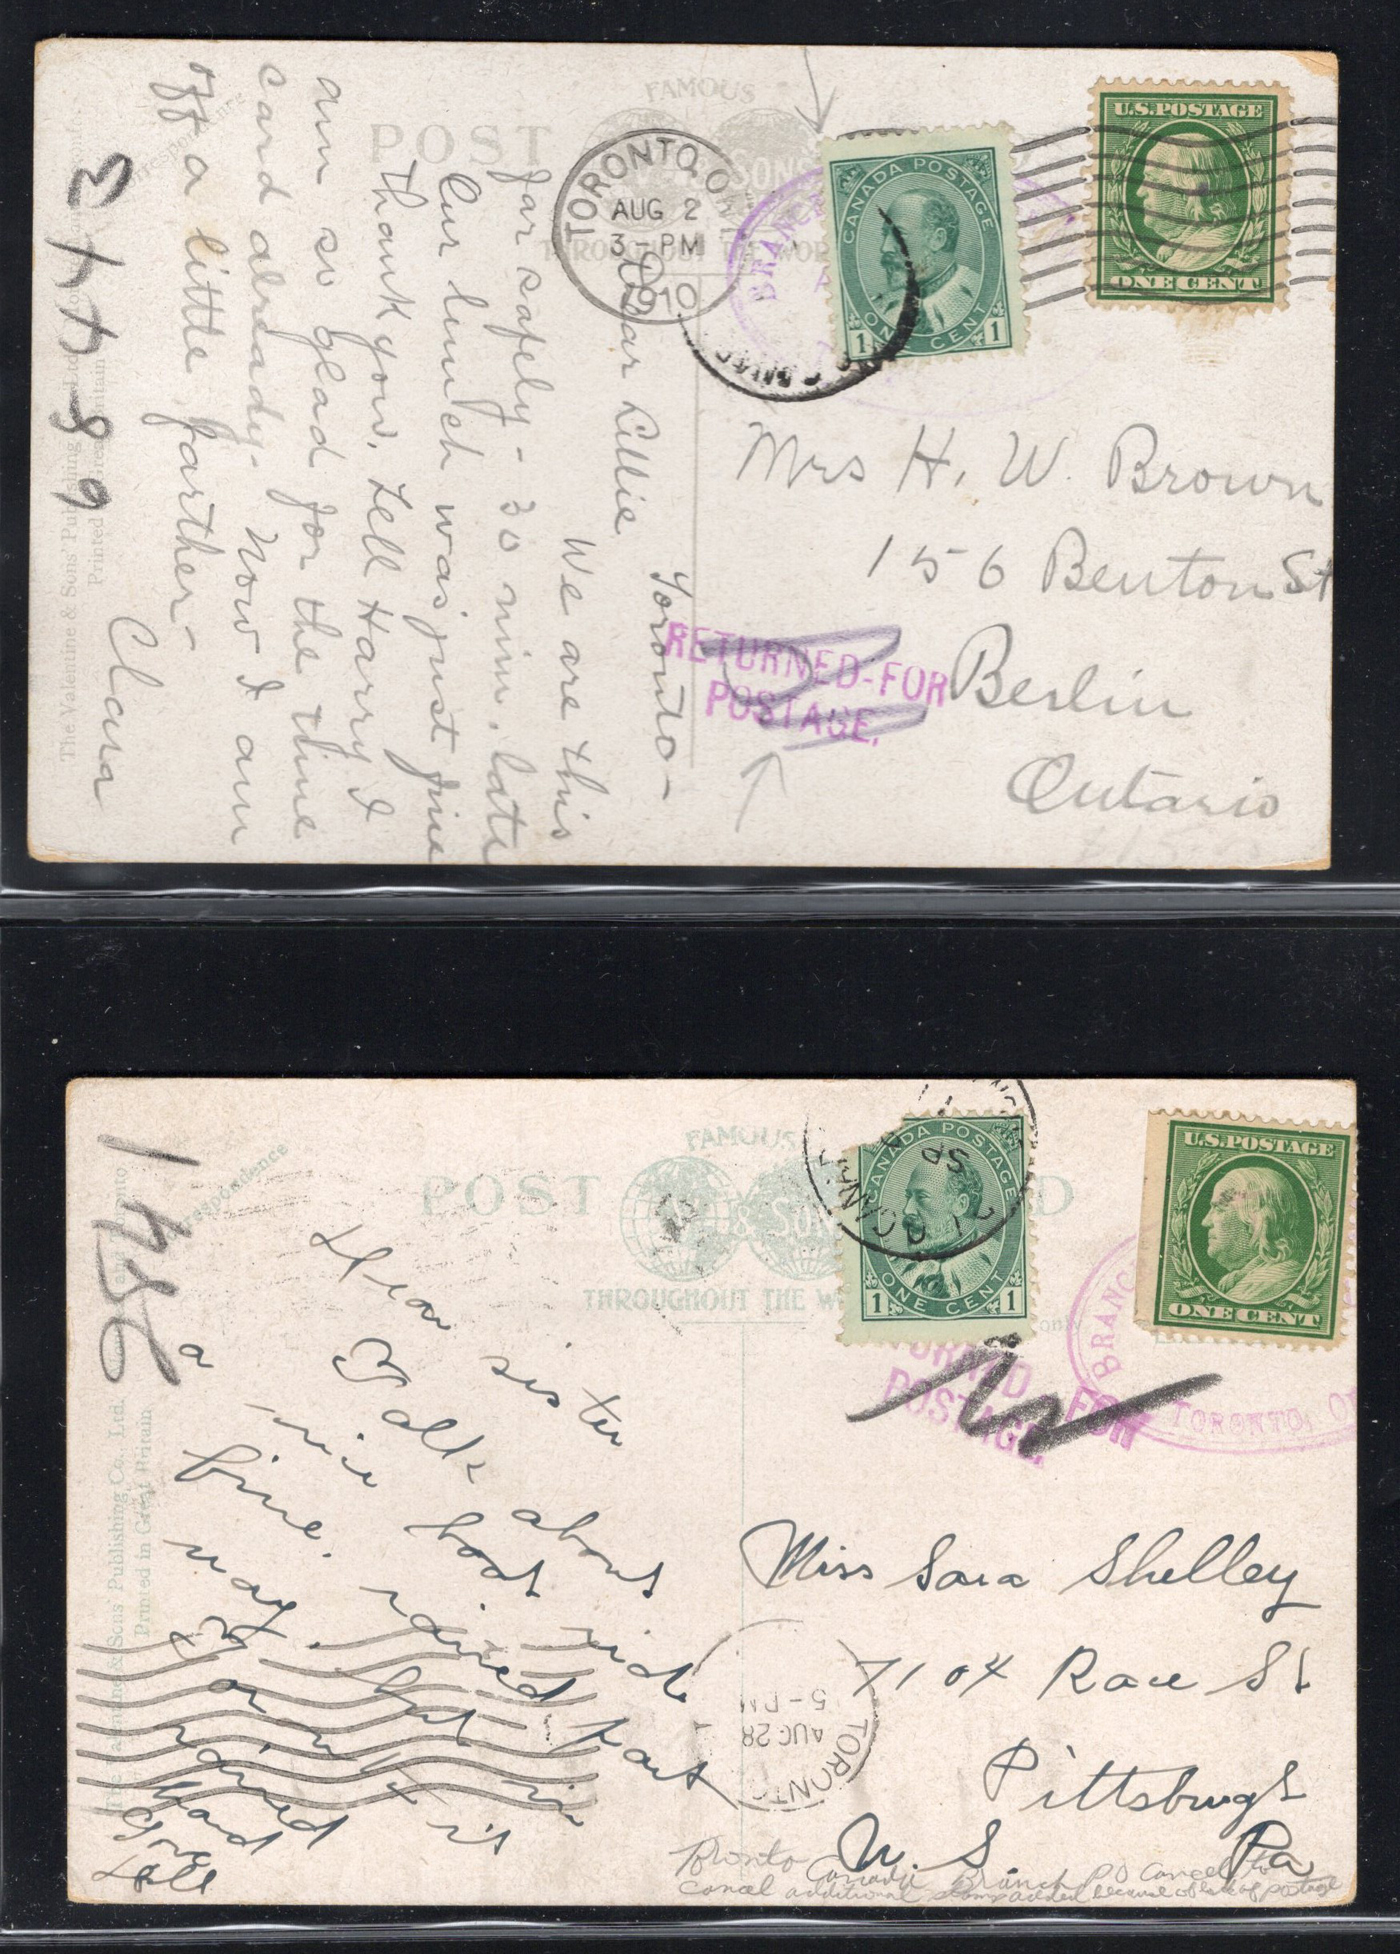 FAMOUS
POST
& SONS
THROUGHOUT THE WOR
TORONTO, ONT
AUG 2
3-PM
1910
BRANC
CANADA POSTAGE
ONE CENT
1 1
U.S. POSTAGE
ONE CENT
Mrs H. W. Brown
156 Benton St
Berlin
Ontario
RETURNED-FOR
POSTAGE.
Toronto-
Dear Lillie
We are this
far safely - 30 min. late
Our lunch was just fine
thank you. Tell Harry I
am so glad for the time
card already. Now I am
off a little farther-
Clara
The Valentine & Sons' Publishing
Printed Great Britain
FAMOUS
POST D
& SONS
THROUGHOUT THE W
only
CANADA POSTAGE
ONE CENT
1 1
SP
CANA
U.S. POSTAGE
ONE CENT
BRANC
TORONTO, O
URNED FOR
POSTAGE.
Miss Sara Shelley
7104 Race St
Pittsburgh
U. S. Pa
TORONTO
AUG 28
5-PM
Correspondence
Dear sister
Talk about
a nice boat ride
fine. rained part
way, but in
Toronto it
rained
hard
The Valentine & Sons' Publishing Co., Ltd. and Toronto
Printed in Great Britain
Toronto Canada Branch P O Cancel to
cancel additional stamp added because of lack of postage